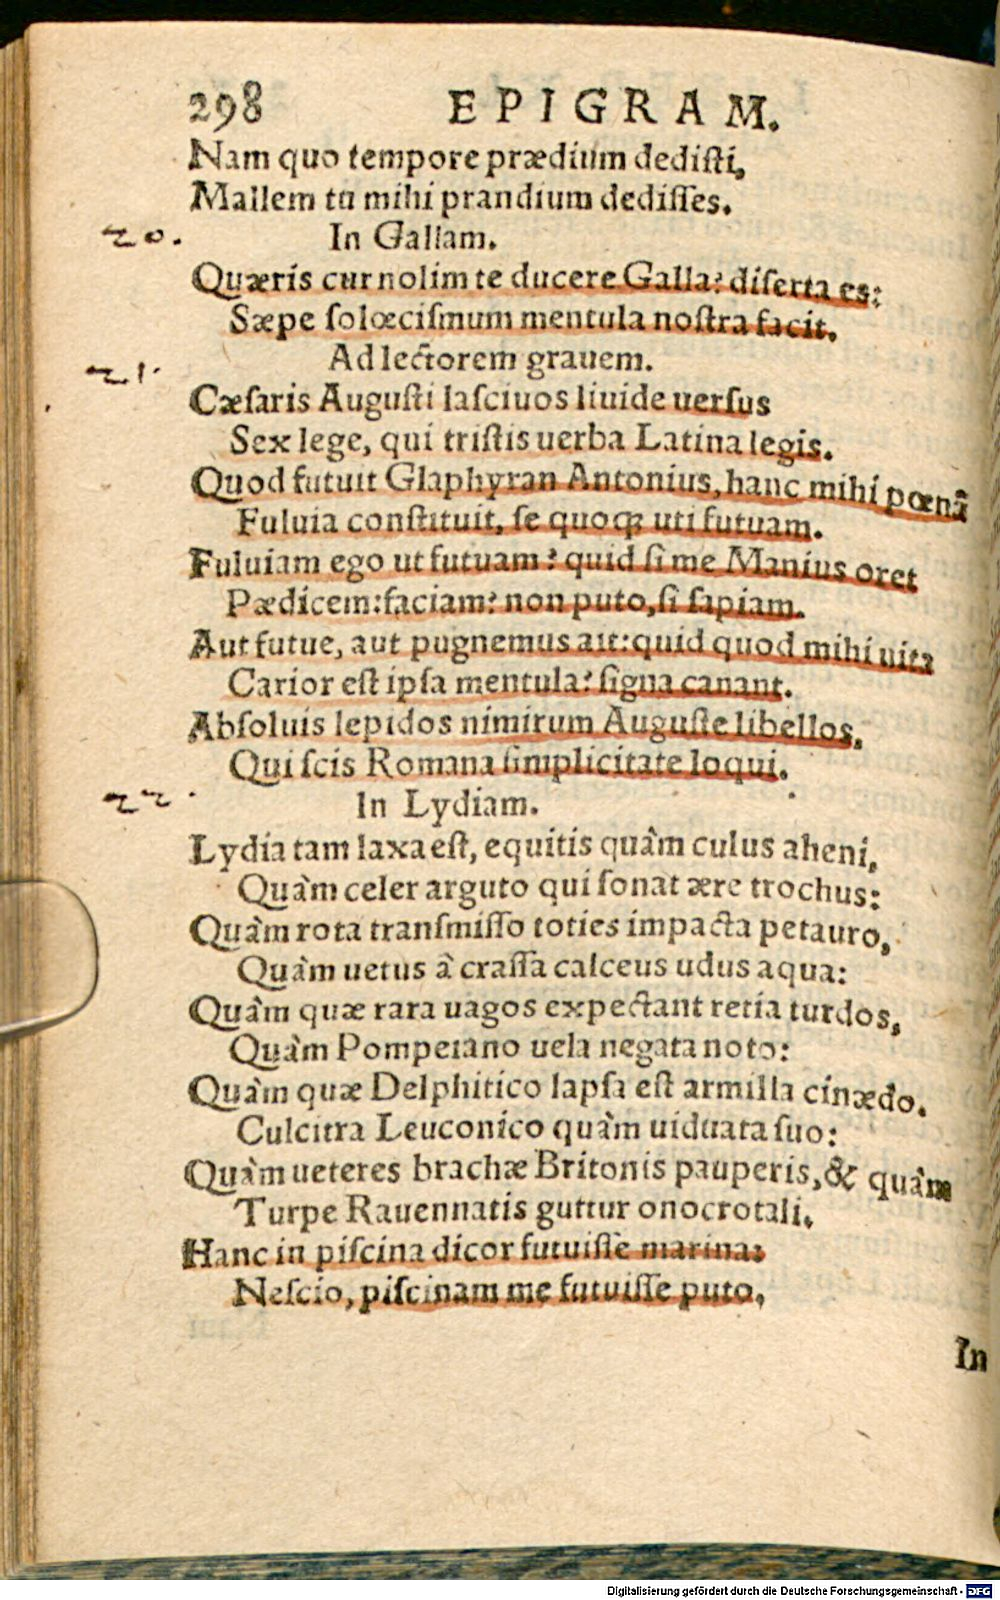 298 EPIGRAM.
Nam quo tempore prædium dedisti,
Mallem tu mihi prandium dedisses.
20. In Gallam.
Quæris cur nolim te ducere Galla? diserta es:
Sæpe solœcismum mentula nostra facit.
21. Ad lectorem grauem.
Cæsaris Augusti lasciuos liuide uersus
Sex lege, qui tristis uerba Latina legis.
Quod futuit Glaphyran Antonius, hanc mihi pœnã
Fuluia constituit, se quoq; uti futuam.
Fuluiam ego ut futuam? quid si me Manius oret
Pædicem: faciam? non puto, si sapiam.
Aut futue, aut pugnemus ait: quid quod mihi uita
Carior est ipsa mentula? signa canant.
Absoluis lepidos nimirum Auguste libellos,
Qui scis Romana simplicitate loqui.
22. In Lydiam.
Lydia tam laxa est, equitis quàm culus aheni,
Quàm celer arguto qui sonat ære trochus:
Quàm rota transmisso toties impacta petauro,
Quàm uetus â crassa calceus udus aqua:
Quàm quæ rara uagos expectant retia turdos,
Quàm Pompeiano uela negata noto:
Quàm quæ Delphitico lapsa est armilla cinædo.
Culcitra Leuconico quàm uiduata suo:
Quàm ueteres brachæ Britonis pauperis, & quàm
Turpe Rauennatis guttur onocrotali,
Hanc in piscina dicor futuisse marina:
Nescio, piscinam me futuisse puto,
In
Digitalisierung gefördert durch die Deutsche Forschungsgemeinschaft - DFG